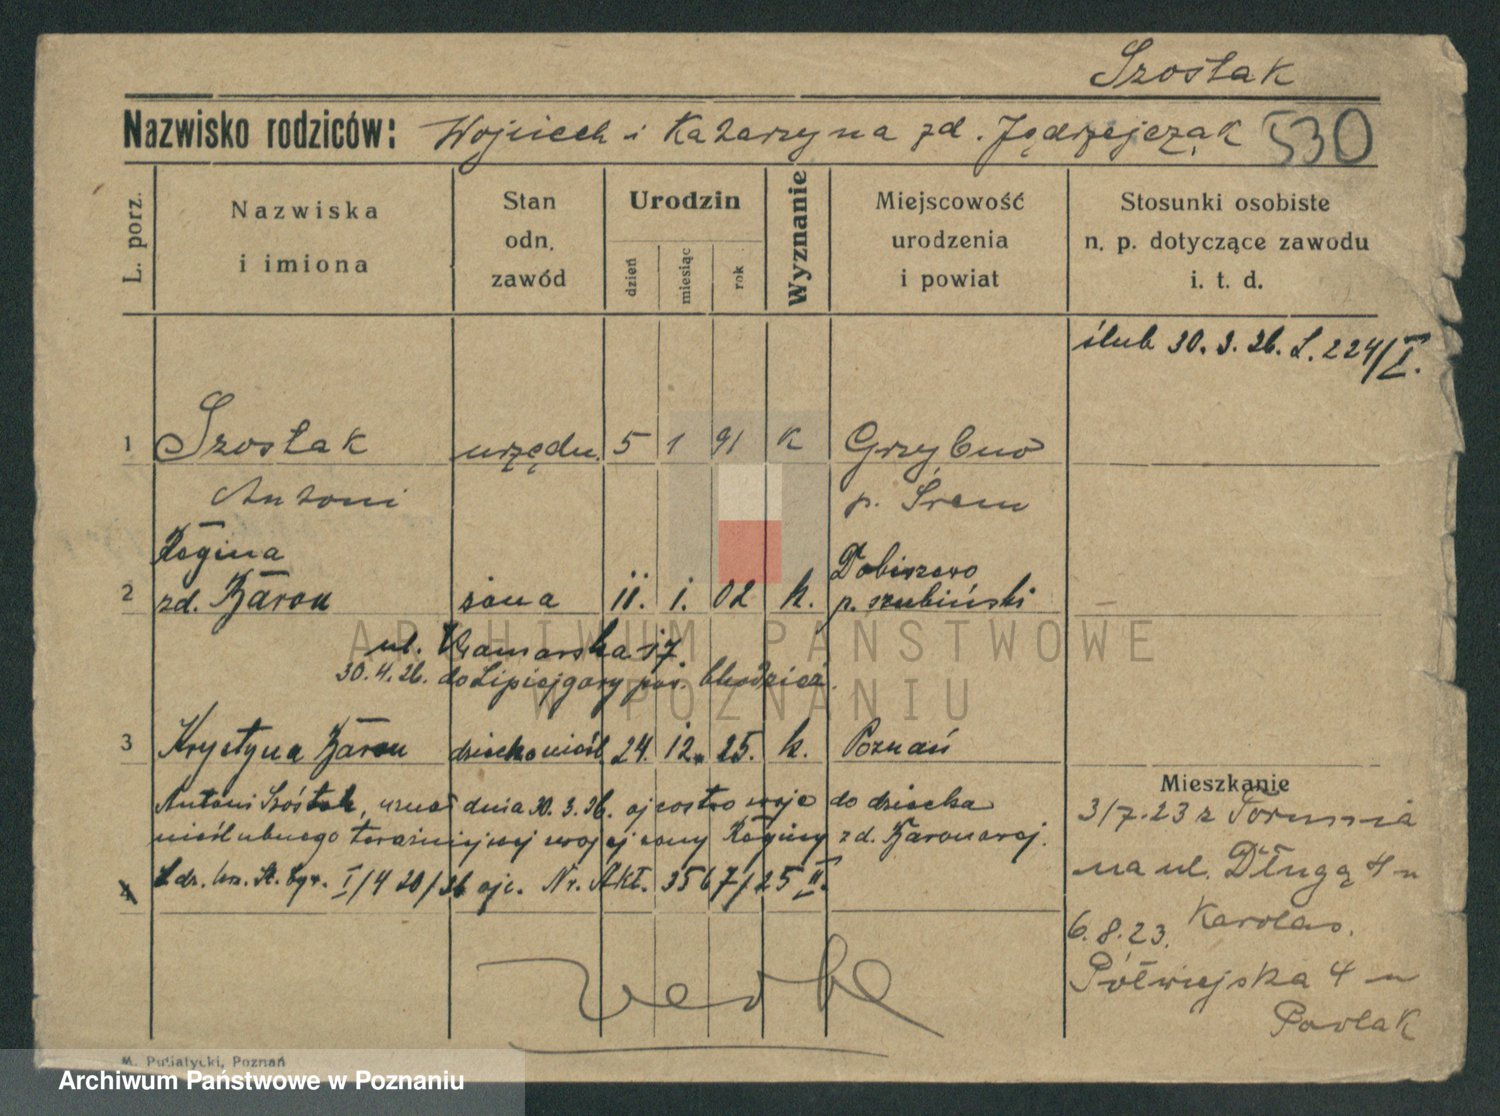 Szostak
Nazwisko rodziców: Wojciech i Katarzyna zd. Jędrzejczak 530
L. porz.
Nazwiska
i imiona
Stan
odn.
zawód
Urodzin
dzień
miesiąc
rok
Wyznanie
Miejscowość
urodzenia
i powiat
Stosunki osobiste
n. p. dotyczące zawodu
i. t. d.
ślub 30. 3. 26. L. 224/I.
1 Szostak urzędn. 5 1 91 K Grzybno
Antoni p. Śrem
Regina Dobieszewo
2 zd. Baron żona 11. 1. 02 k. p. szubiński
ul. Kramarska 17.
30. 4. 26. do Lipiejgóry pow. Chodzież.
3 Krystyna Baron dziecko nieśl 24. 12. 25. k. Poznań
Antoni Szóstak, uznał dnia 30. 3. 26. ojcostwo swoje do dziecka
nieślubnego teraźniejszej swojej żony Reginy zd. Baronówej.
4 I/4 20/26 Nr. Akt. 3567/25 II.
Mieszkanie
3/7.23 z Torunia
na ul. Długą 4 u
Karolas.
6. 8. 23.
Półwiejska 4 u
Pawlak
M. Putiatycki, Poznań
ARCHIWUM PAŃSTWOWE
W POZNANIU
Archiwum Państwowe w Poznaniu